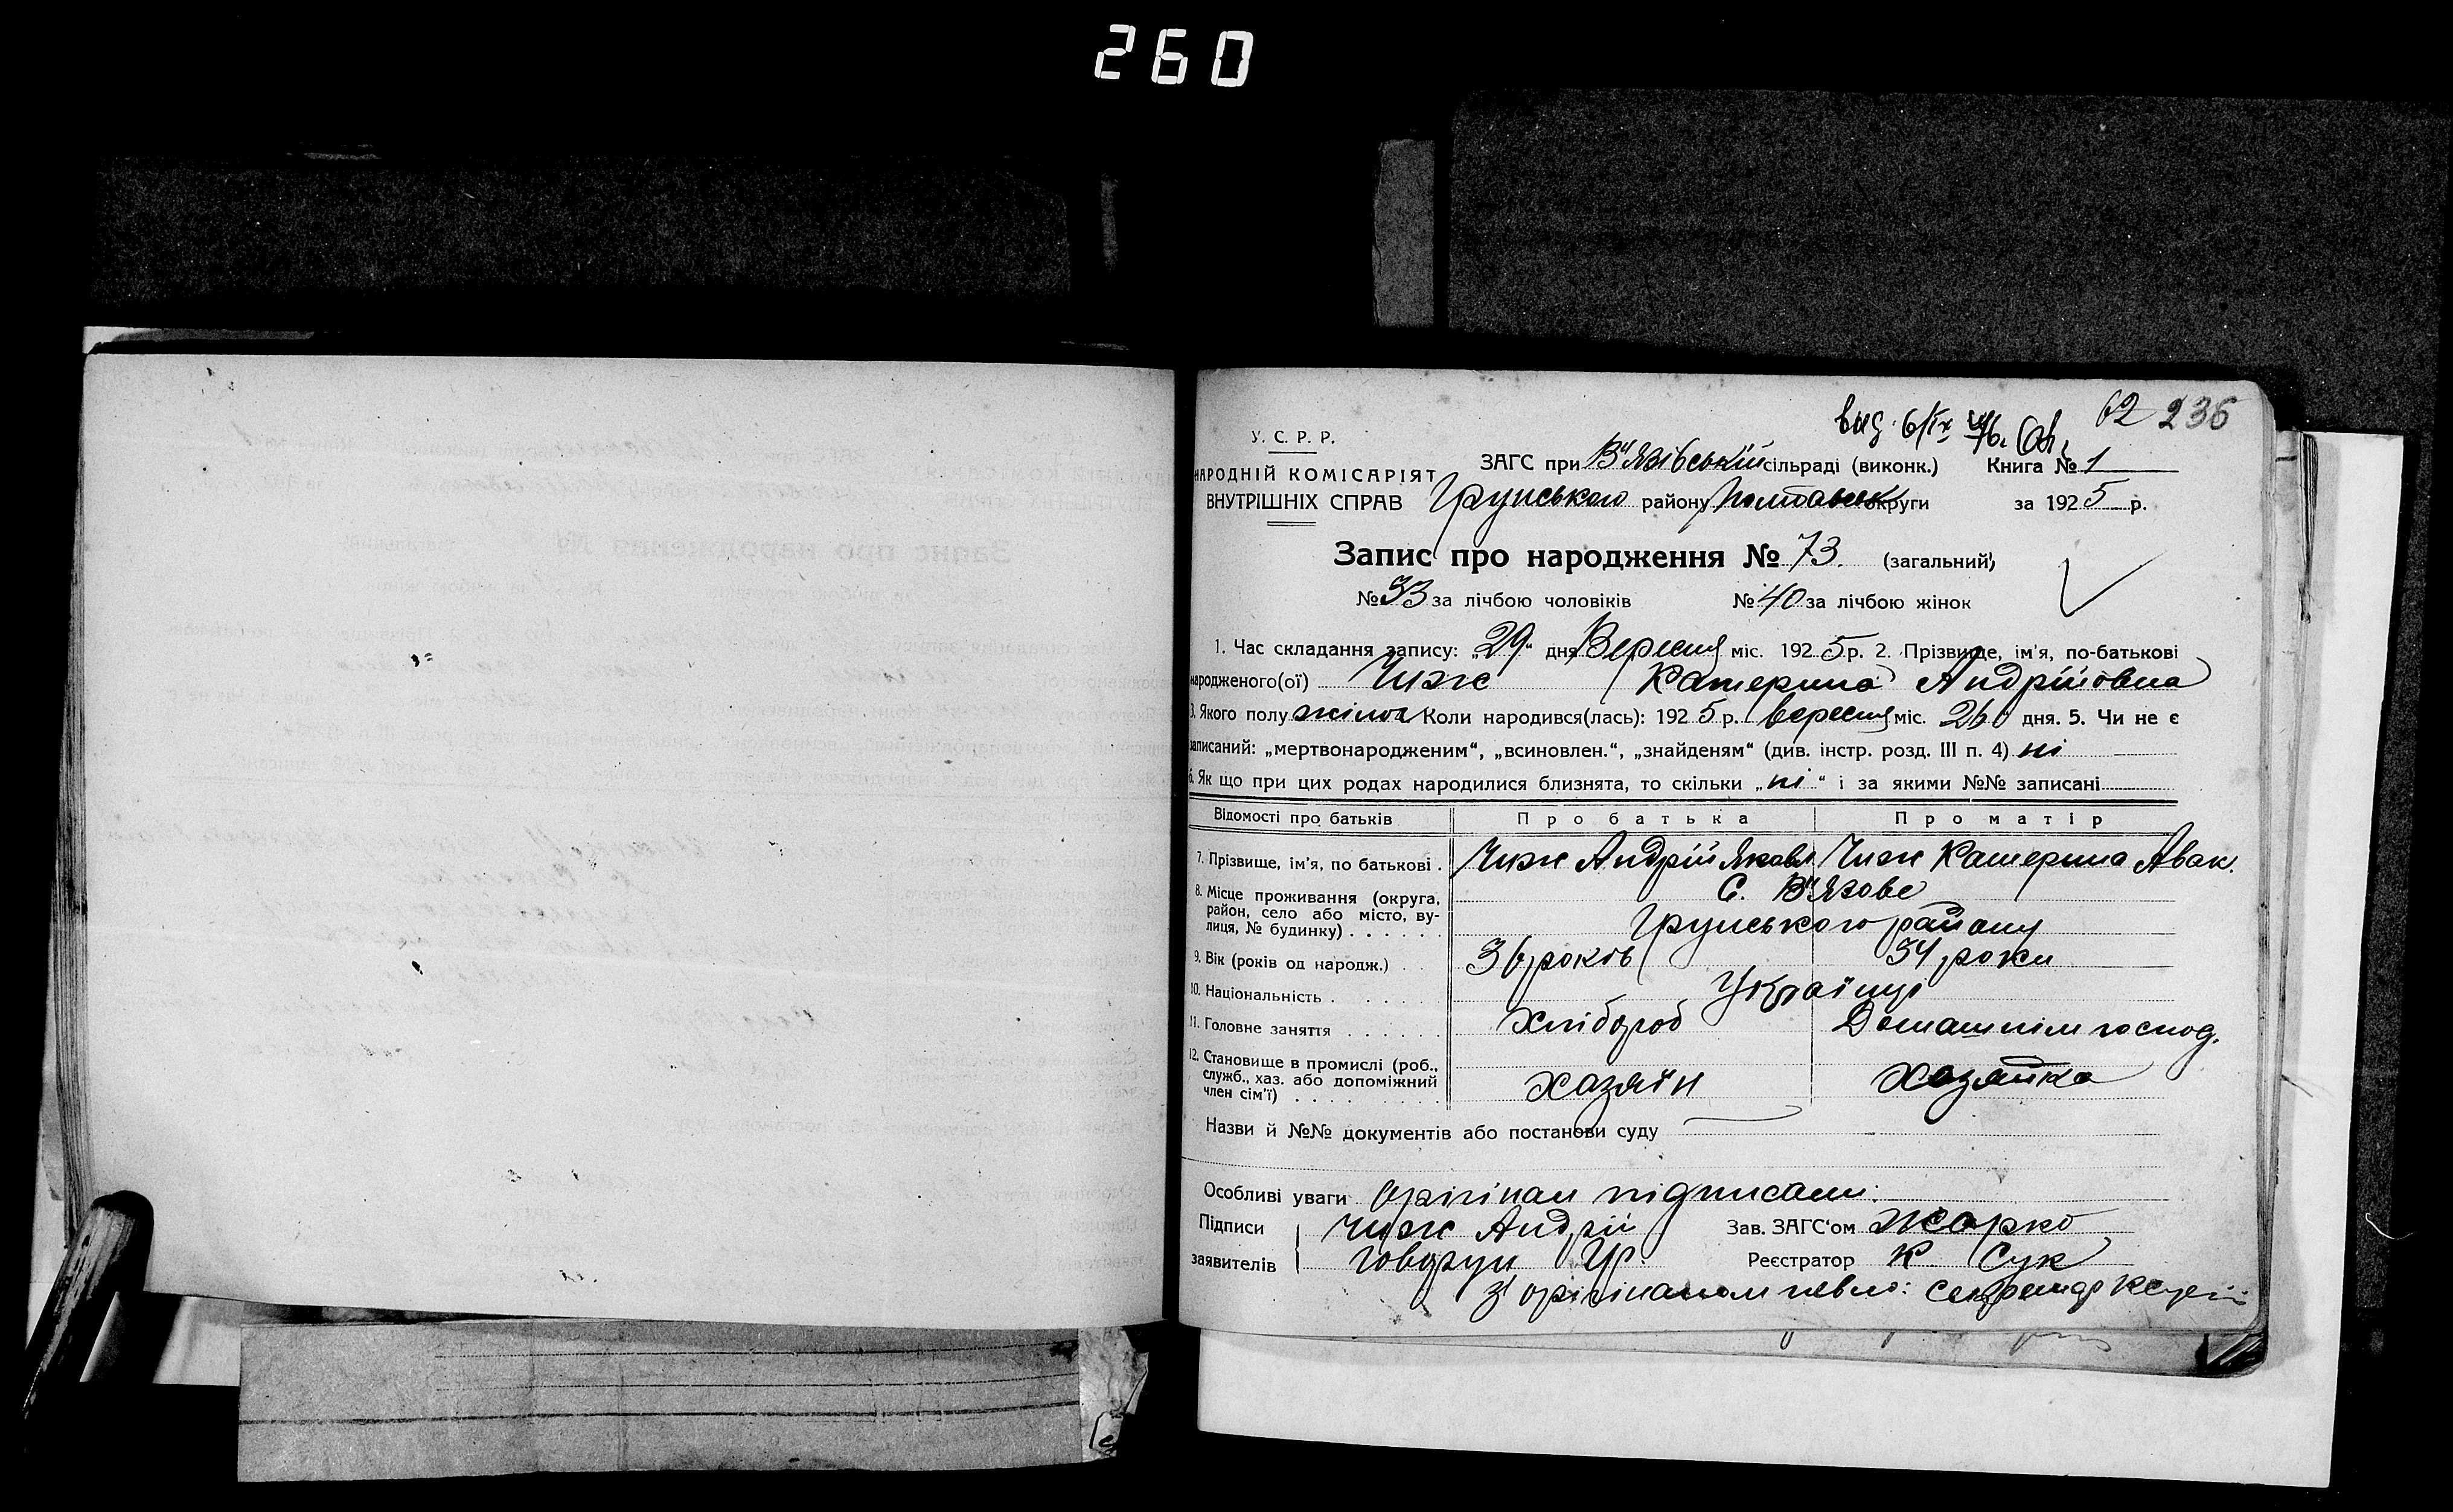 260
вид. 6/ІХ 62 236
У. С. Р. Р.
НАРОДНІЙ КОМІСАРІЯТ
ВНУТРІШНІХ СПРАВ
ЗАГС при В"язівській сільраді (виконк.) Книга № 1
Грунського району Полтавськ округи за 1925 р.
Запис про народження № 73. (загальний)
№ 33 за лічбою чоловіків № 40 за лічбою жінок
1. Час складання запису: „29" дня Вересня міс. 1925 р. 2. Прізвище, ім'я, по-батькові
народженого(ої) Чиж Катерина Андрійовна
3. Якого полу жіноч Коли народився(лась): 1925 р. вересня міс. 26 дня. 5. Чи не є
записаний: „мертвонародженим", „всиновлен.", „знайденям" (див. інстр. розд. III п. 4) ні
6. Як що при цих родах народилися близнята, то скільки „ні" і за якими №№ записані
Відомості про батьків Про батька Про матір
7. Прізвище, ім'я, по батькові . Чиж Андрій Яковл Чиж Катерина Авак.
8. Місце проживання (округа, район, село або місто, вулиця, № будинку) . . . . . . С. В"язове
Грунського району
9. Вік (років од народж.) . . 36 років 34 роки
10. Національність . . . . . Українці
11. Головне заняття . . . . . Хлібороб Домашнім господ.
12. Становище в промислі (роб., служб., хаз. або допоміжний член сім'ї) . . . . Хазяїн Хазяйка
Назви й №№ документів або постанови суду
Особливі уваги Орігінал підписали:
Підписи заявителів Чиж Андрій Зав. ЗАГС'ом Жарко
Говорун Гр. Реєстратор К Сук
З орігіналом певно: Секретар